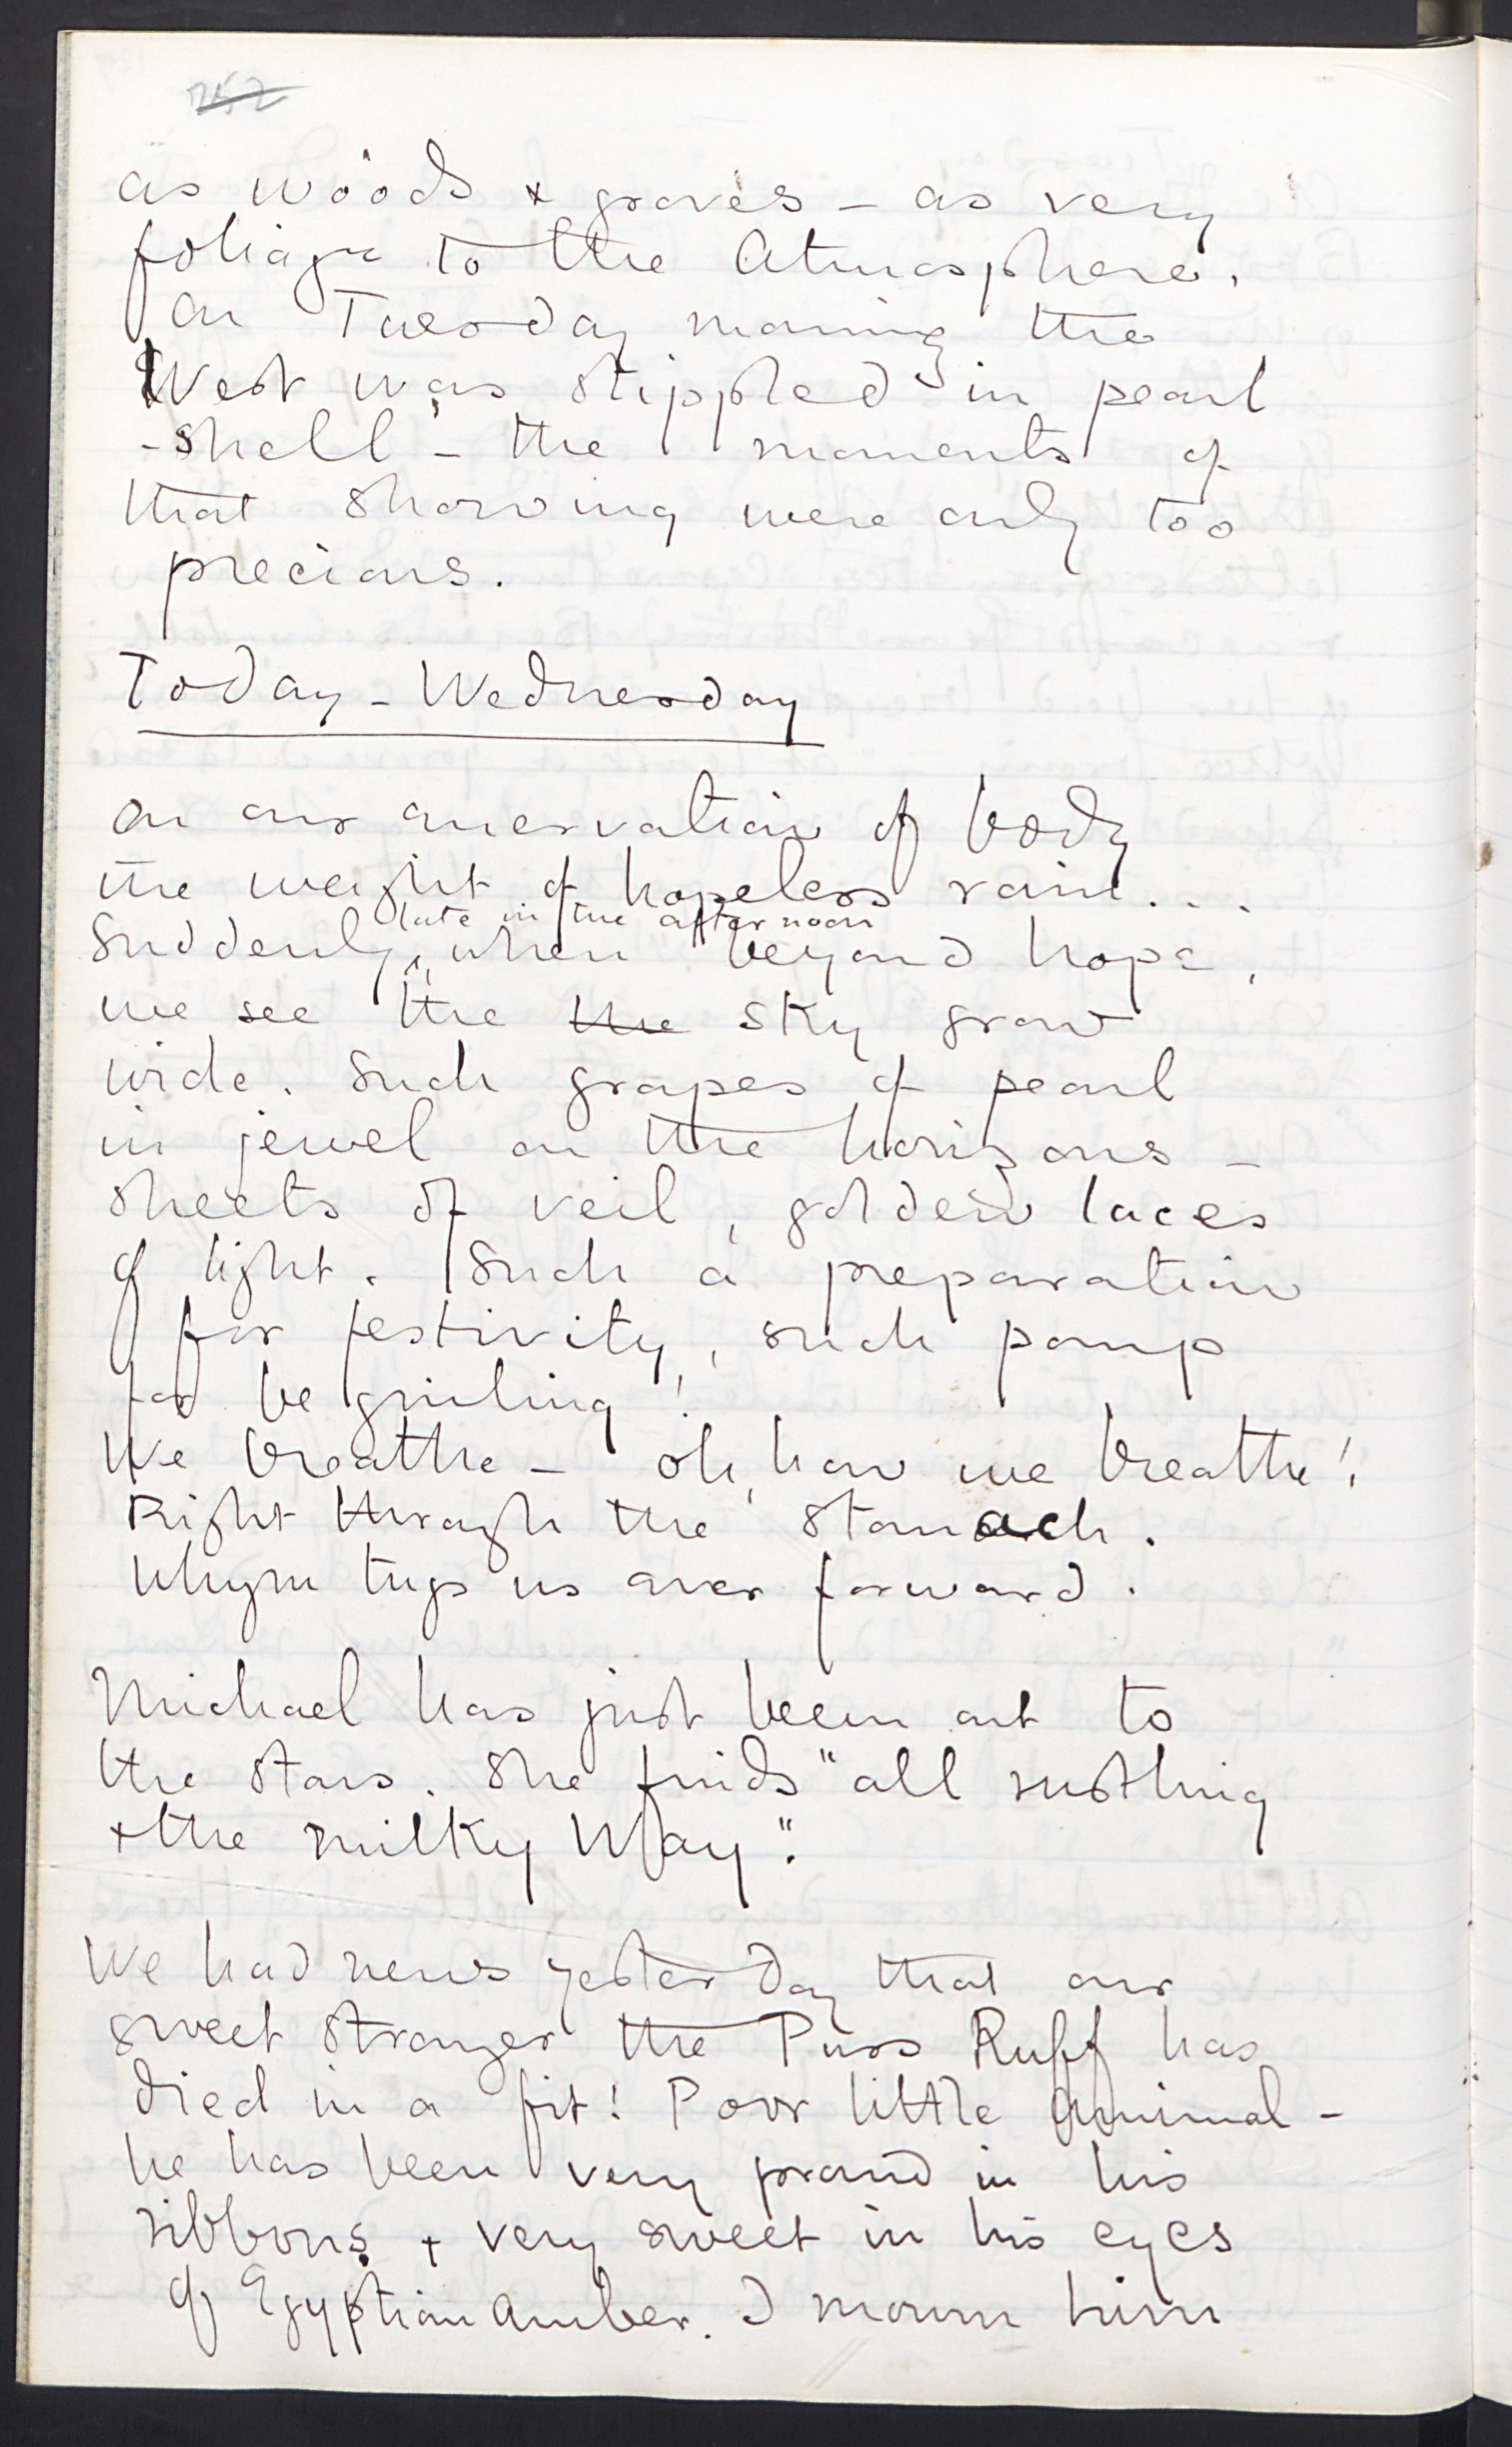 252
as woods & groves – as very
foliage to the Atmosphere.
On Tuesday morning the
West was stippled in pearl
-shell – the moments of
that showing were only too
precious.
Today – Wednesday
On our enervation of body
the weight of hopeless rain...
late in the afternoon
Suddenly, when beyond hope,
we see the the sky grow
wide. Such grapes of pearl
in jewel on the horizons –
sheets of veil, golden laces
of light. Such a preparation
for festivity, such pomp
for beguiling!
We breathe – oh, how we breathe!
Right through the stomach.
Whym tugs us over forward.
Michael has just been out to
the stars. She finds "all rustling
& the milky Way".
We had news yesterday that our
sweet stranger the Puss Ruff has
died in a fit! Poor little animal –
he has been very proud in his
ribbons & very sweet in his eyes
of Egyptian Amber. I mourn him